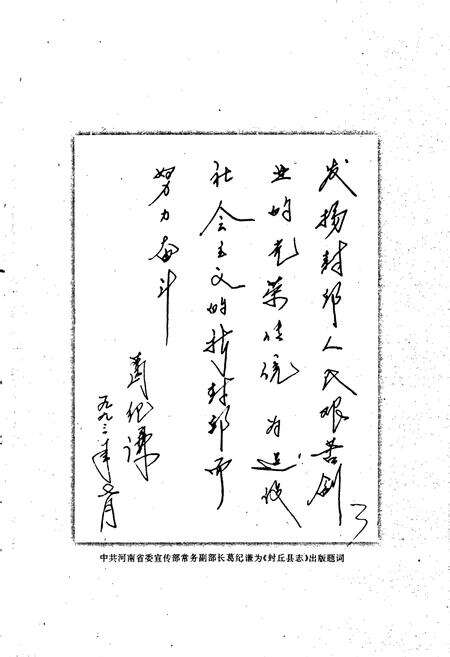 发扬封邱人民艰苦创
业的光荣传统 为建设
社会主义的新封邱而
努力奋斗
葛纪谦
一九九三年 月
中共河南省委宣传部常务副部长葛纪谦为《封丘县志》出版题词